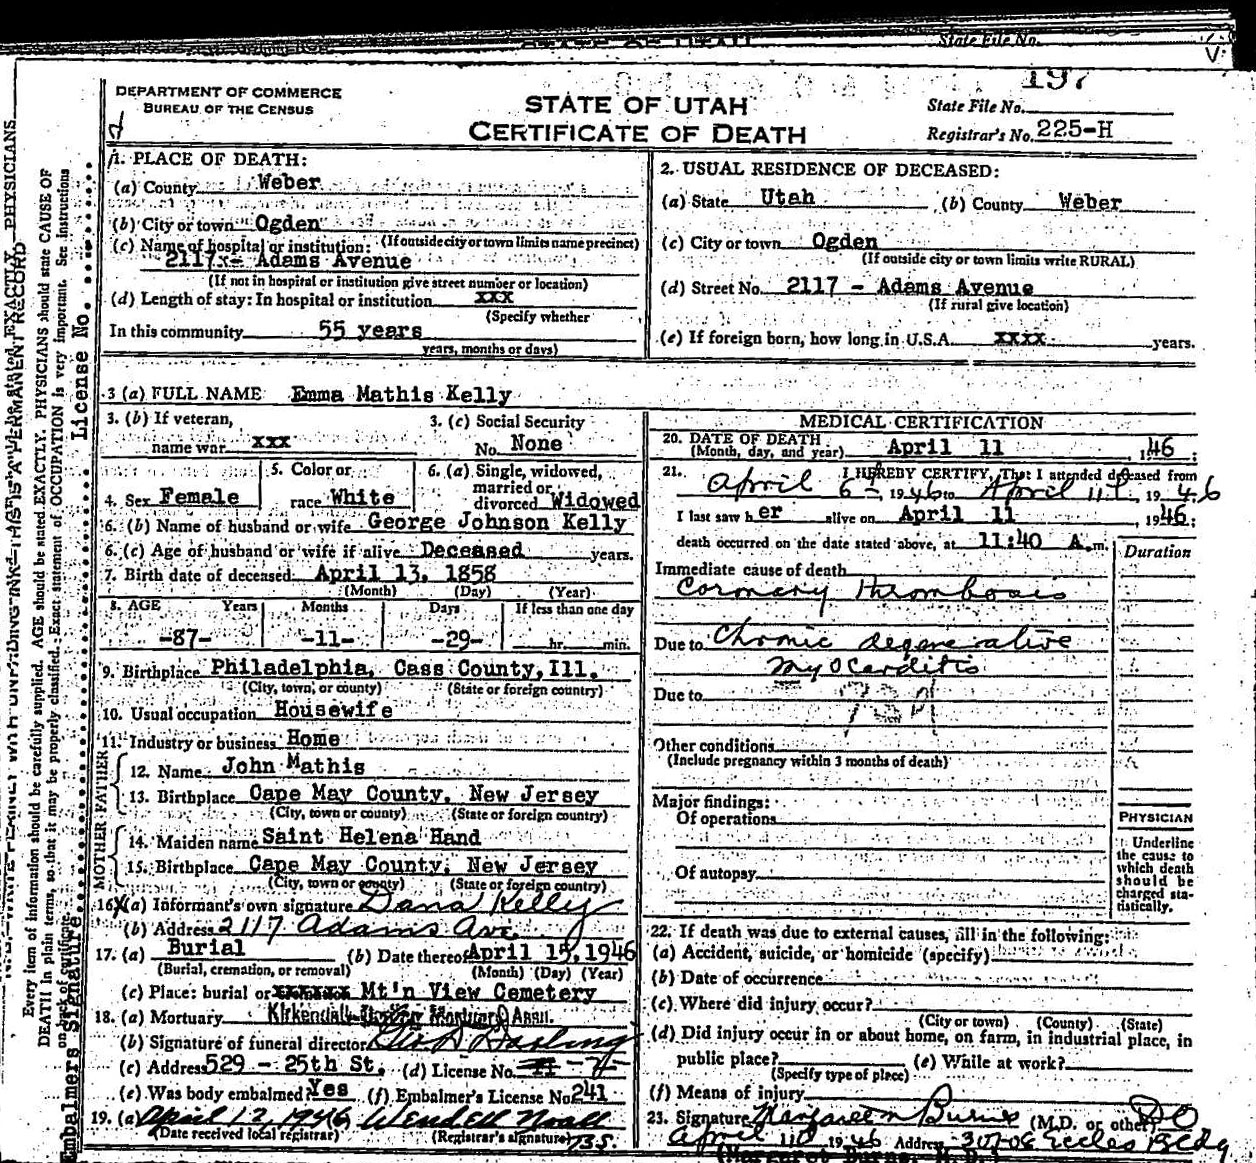 STATE OF UTAH
State File No.
197
DEPARTMENT OF COMMERCE
BUREAU OF THE CENSUS
STATE OF UTAH
CERTIFICATE OF DEATH
State File No.
Registrar's No. 225-H
1. PLACE OF DEATH:
(a) County Weber
(b) City or town Ogden
(If outside city or town limits name precinct)
(c) Name of hospital or institution:
2117 - Adams Avenue
(If not in hospital or institution give street number or location)
(d) Length of stay: In hospital or institution xxx
(Specify whether
In this community 55 years
years, months or days)
2. USUAL RESIDENCE OF DECEASED:
(a) State Utah (b) County Weber
(c) City or town Ogden
(If outside city or town limits write RURAL)
(d) Street No. 2117 - Adams Avenue
(If rural give location)
(e) If foreign born, how long in U.S.A. xxxx years.
3 (a) FULL NAME Emma Mathis Kelly
3. (b) If veteran,
name war xxx
3. (c) Social Security
No. None
4. Sex Female
5. Color or
race White
6. (a) Single, widowed,
married or
divorced Widowed
6. (b) Name of husband or wife George Johnson Kelly
6. (c) Age of husband or wife if alive Deceased years.
7. Birth date of deceased: April 13, 1858
(Month) (Day) (Year)
8. AGE Years Months Days If less than one day
-87- -11- -29- hr. min.
9. Birthplace Philadelphia, Cass County, Ill.
(City, town, or county) (State or foreign country)
10. Usual occupation Housewife
11. Industry or business Home
FATHER
12. Name John Mathis
13. Birthplace Cape May County, New Jersey
(City, town or county) (State or foreign country)
MOTHER
14. Maiden name Saint Helena Hand
15. Birthplace Cape May County, New Jersey
(City, town or county) (State or foreign country)
16. (a) Informant's own signature Dana Kelly
(b) Address 2117 Adams Ave
17. (a) Burial (b) Date thereof April 15, 1946
(Burial, cremation, or removal) (Month) (Day) (Year)
(c) Place: burial or xxxxxxx Mt'n View Cemetery
18. (a) Mortuary Kirkendall
(b) Signature of funeral director Geo D Darling
(c) Address 529 - 25th St. (d) License No.
(e) Was body embalmed? Yes (f) Embalmer's License No. 241
19. (a) April 12, 1946 Wendell Noall
(Date received local registrar) (Registrar's signature) 735.
MEDICAL CERTIFICATION
20. DATE OF DEATH
(Month, day, and year) April 11, 1946;
21. I HEREBY CERTIFY, That I attended deceased from
April 6th 1946 to April 11, 1946
I last saw her alive on April 11, 1946;
death occurred on the date stated above, at 11:40 A.m.
Duration
Immediate cause of death
Coronary thrombosis
Due to Chronic degenerative
myocarditis
Due to
Other conditions
(Include pregnancy within 3 months of death)
Major findings:
Of operations
Of autopsy
PHYSICIAN
Underline
the cause to
which death
should be
charged sta-
tistically.
22. If death was due to external causes, fill in the following:
(a) Accident, suicide, or homicide (specify)
(b) Date of occurrence
(c) Where did injury occur?
(City or town) (County) (State)
(d) Did injury occur in or about home, on farm, in industrial place, in
public place? (e) While at work?
(Specify type of place)
(f) Means of injury
23. Signature Margaret M Burns (M.D. or other) DO
April 11 1946 Address 307-08 Eccles Bldg
(Margaret Burns, M.D.)
Every item of information should be carefully supplied. AGE should be stated EXACTLY. PHYSICIANS should state CAUSE OF
DEATH in plain terms, so that it may be properly classified. Exact statement of OCCUPATION is very important. See Instructions
on back of certificate.
Embalmers Signature License No.